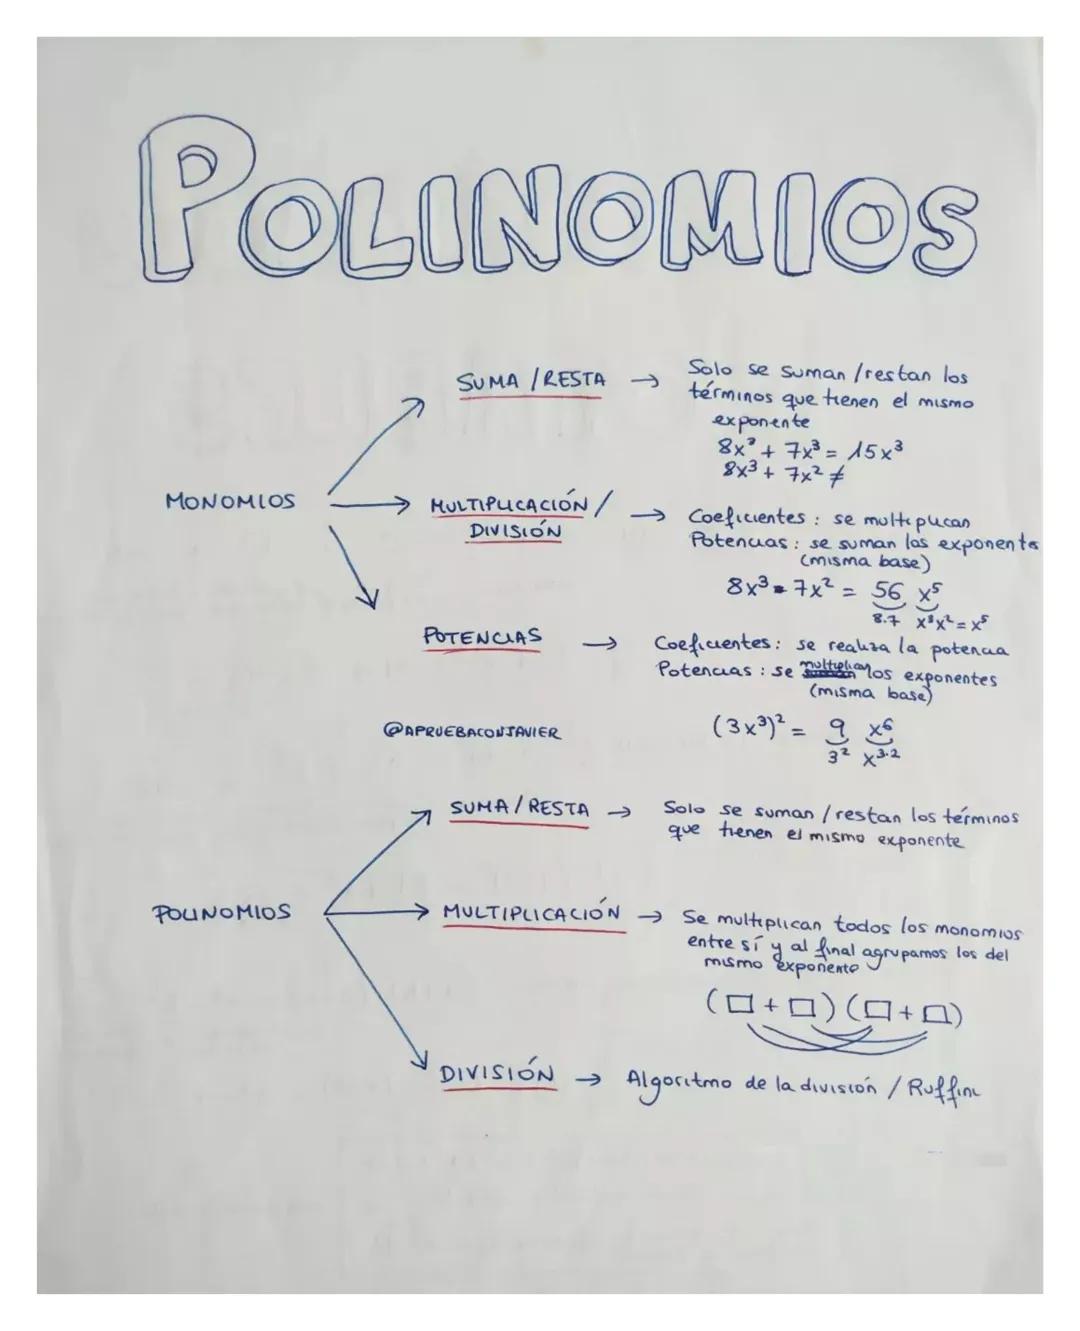 POLINOMIOS
SUMA / RESTA → Solo se suman / restan los
términos que tienen el mismo
exponente
8x³ + 7x³ = 15x³
8x³ + 7x² ≠
MONOMIOS
MULTIPLICACIÓN /
DIVISIÓN
→ Coeficientes : se multiplican
Potencias : se suman los exponentes
(misma base)
8x³ · 7x² = 56 x⁵
8·7 x³x² = x⁵
POTENCIAS → Coeficientes : se realiza la potencia
Potencias : se multiplican los exponentes
(misma base)
@APRUEBACONJAVIER
(3x³)² = 9 x⁶
3² x³·²
SUMA / RESTA → Solo se suman / restan los términos
que tienen el mismo exponente
POLINOMIOS
MULTIPLICACIÓN → Se multiplican todos los monomios
entre sí y al final agrupamos los del
mismo exponente
(□ + □) (□ + □)
DIVISIÓN → Algoritmo de la división / Ruffini